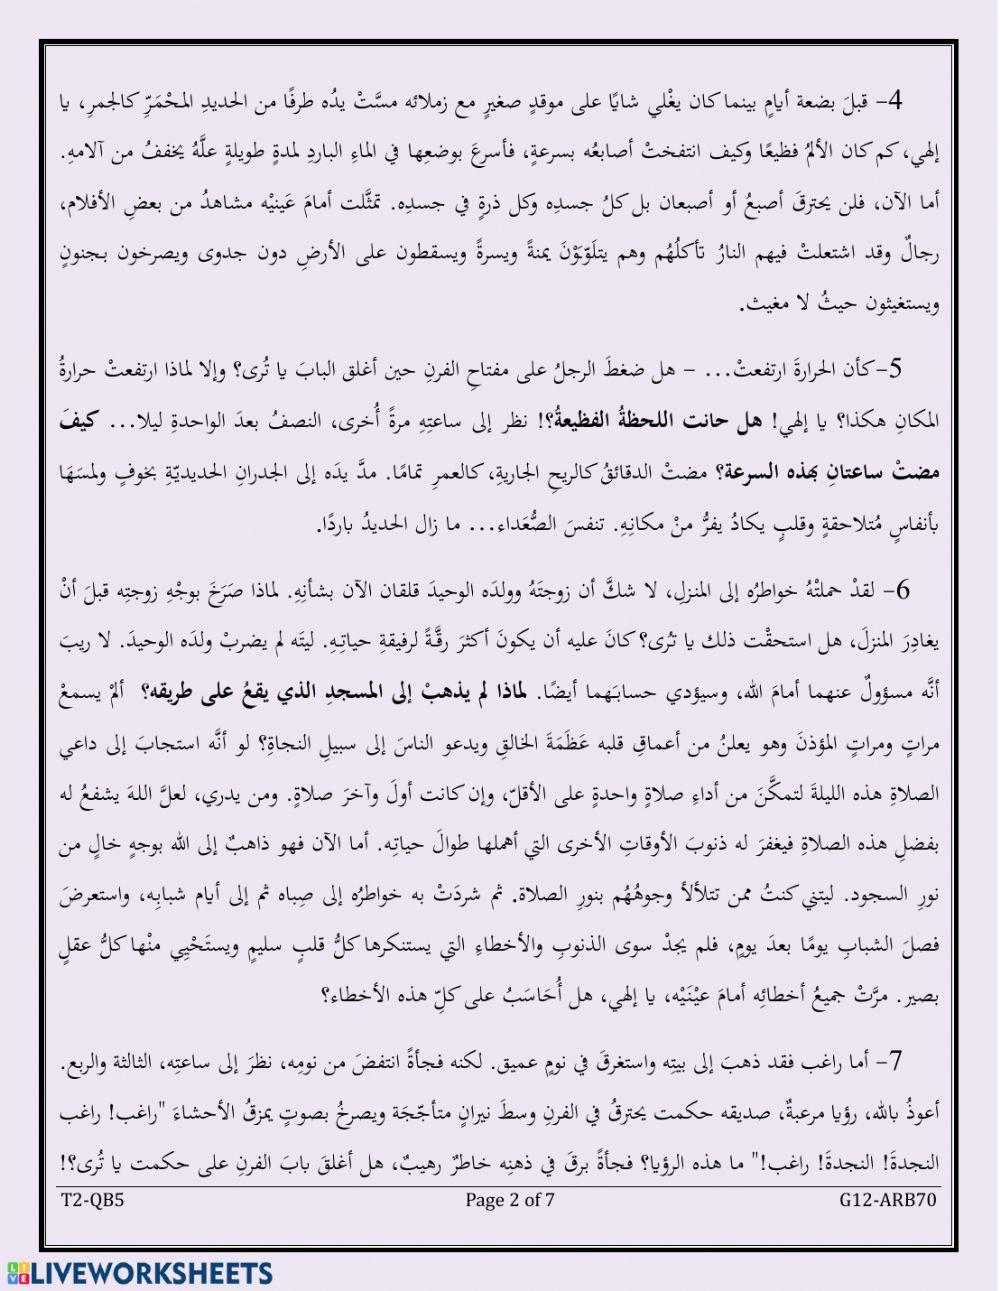 4- قبلَ بضعة أيامٍ بينما كان يغْلي شايًا على موقدٍ صغيرٍ مع زملائه مسَّتْ يدُه طرفًا من الحديدِ المحْمَرّ كالجمرِ، يا
إلهي، كم كان الألمُ فظيعًا وكيف انتفختْ أصابعُه بسرعةٍ، فأسرعَ بوضعِها في الماءِ الباردِ لمدةٍ طويلةٍ علَّهُ يخففُ من آلامهِ.
أما الآن، فلن يحترقَ أصبعُ أو أصبعان بل كلُ جسدِه وكل ذرةٍ في جسدِه. تمثَّلت أمامَ عَينيْه مشاهدُ من بعضِ الأفلام،
رجالٌ وقد اشتعلتْ فيهم النارُ تأكلُهُم وهم يتلَوّوْنَ يمنةً ويسرةً ويسقطون على الأرضِ دون جدوى ويصرخون بجنونٍ
ويستغيثون حيثُ لا مغيث.
5-كأن الحرارةَ ارتفعتْ... – هل ضغطَ الرجلُ على مفتاحِ الفرنِ حين أغلق البابَ يا تُرى؟ وإلا لماذا ارتفعتْ حرارةُ
المكانِ هكذا؟ يا إلهي! هل حانت اللحظةُ الفظيعةُ؟! نظر إلى ساعتِهِ مرةً أُخرى، النصفُ بعدَ الواحدةِ ليلا... كيفَ
مضتْ ساعتانِ بهذه السرعة؟ مضتْ الدقائقُ كالريحِ الجاريةِ، كالعمرِ تمامًا. مدَّ يدَه إلى الجدرانِ الحديديّةِ بخوفٍ ولمسَهَا
بأنفاسٍ مُتلاحقةٍ وقلبٍ يكادُ يفرُّ منْ مكانِهِ. تنفسَ الصُّعَداء... ما زال الحديدُ باردًا.
6- لقدْ حملتْهُ خواطرُه إلى المنزلِ، لا شكَّ أن زوجتَهُ وولدَه الوحيدَ قلقان الآن بشأنِهِ. لماذا صَرَخَ بوجْهِ زوجتِه قبلَ أنْ
يغادِرَ المنزلَ، هل استحقْت ذلك يا تُرى؟ كانَ عليه أن يكونَ أكثرَ رقَّةً لرفيقةِ حياتِهِ. ليتَه لم يضربْ ولدَه الوحيدَ. لا ريبَ
أنَّه مسؤولٌ عنهما أمامَ الله، وسيؤدي حسابَهما أيضًا. لماذا لم يذهبْ إلى المسجدِ الذي يقعُ على طريقه؟ ألمْ يسمعْ
مراتٍ ومراتٍ المؤذنَ وهو يعلنُ من أعماقِ قلبه عَظَمَةَ الخالقِ ويدعو الناسَ إلى سبيلِ النجاةِ؟ لو أنَّه استجابَ إلى داعي
الصلاةِ هذه الليلةَ لتمكَّنَ من أداءِ صلاةٍ واحدةٍ على الأقلّ، وإن كانت أولَ وآخرَ صلاةٍ. ومن يدري، لعلَّ اللهَ يشفعُ له
بفضلِ هذه الصلاةِ فيغفرَ له ذنوبَ الأوقاتِ الأخرى التي أهملها طوالَ حياتِه. أما الآن فهو ذاهبٌ إلى الله بوجهٍ خالٍ من
نورِ السجود. ليتني كنتُ ممن تتلألأ وجوهُهُم بنورِ الصلاة. ثم شردَتْ به خواطرُه إلى صِباه ثم إلى أيام شبابِه، واستعرضَ
فصلَ الشبابِ يومًا بعدَ يومٍ، فلم يجدْ سوى الذنوبِ والأخطاءِ التي يستنكرها كلُّ قلبٍ سليمٍ ويستَحْيِي منْها كلُّ عقلٍ
بصير. مرَّتْ جميعُ أخطائِه أمامَ عيْنَيْه، يا إلهي، هل أُحَاسَبُ على كلِّ هذه الأخطاء؟
7- أما راغب فقد ذهبَ إلى بيتِه واستغرقَ في نومٍ عميق. لكنه فجأةً انتفضَ من نومِه، نظرَ إلى ساعتِه، الثالثة والربع.
أعوذُ بالله، رؤيا مرعبةٌ، صديقه حكمت يحترقُ في الفرنِ وسطَ نيرانٍ متأجّجَة ويصرخُ بصوتٍ يمزقُ الأحشاءَ "راغب! راغب
النجدةَ! النجدةَ! راغب!" ما هذه الرؤيا؟ فجأةً برقَ في ذهنِه خاطرٌ رهيبٌ، هل أغلقَ بابَ الفرنِ على حكمت يا تُرى؟!
T2-QB5 Page 2 of 7 G12-ARB70
LIVEWORKSHEETS